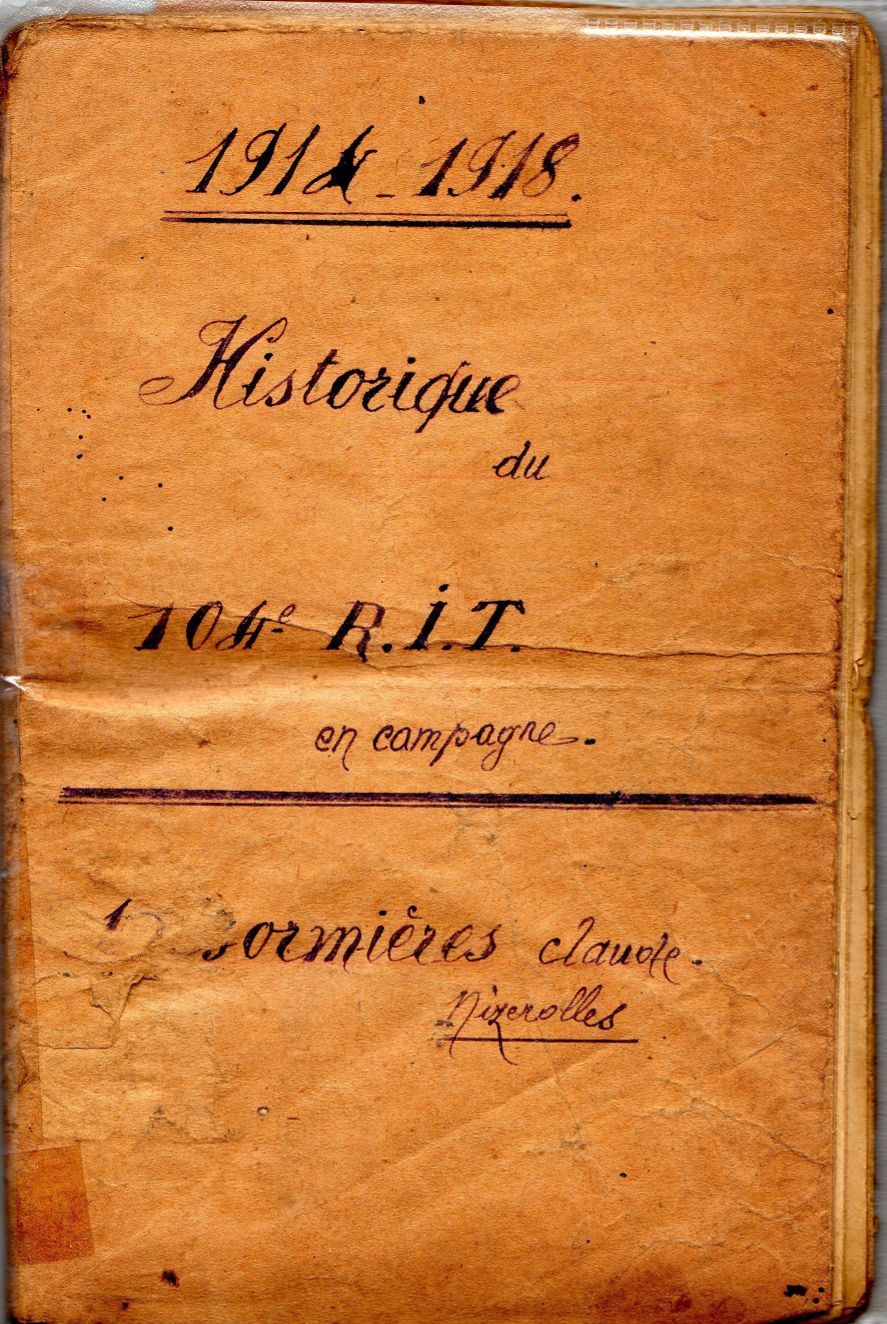 1914-1918.
Historique
du
104e R.I.T.
en campagne.
Claude.
Nizerolles